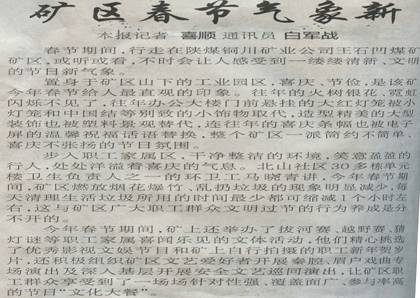 矿区春节气象新
本报记者 喜顺 通讯员 白军战
春节期间，行走在陕煤铜川矿业公司王石凹煤矿
矿区，或听或看，不时会让人感受到一缕缕清新、文明
的节日新气象。
置身于矿区山下的工业园区，喜庆、节俭，是该矿
今年春节给人最直观的印象。往年的火树银花、霓虹
闪烁不见了，往年办公大楼门前悬挂的大红灯笼被小
灯笼和中国结等别致的小饰物取代，造型精美的大型
装饰也被塑料景观替代，连往年的喜庆条幅也被电子
屏的温馨祝福话语替换，整个矿区一派简约不简单、
喜庆不张扬的节日氛围。
步入职工家属区，干净整洁的环境，笑意盈盈的
行人，处处洋溢着喜庆的气息。北山社区30多栋单元
楼卫生负责人之一的环卫工马晓青讲，今年春节期
间，矿区燃放烟花爆竹、乱扔垃圾的现象明显减少，每
天清理生活垃圾所用的时间最少都可缩减1个小时左
右，这与矿区广大职工群众文明过节的行为养成是分
不开的。
今年春节期间，矿上还举办了拔河赛、越野赛、猜
灯谜等职工家属喜闻乐见的文体活动，他们精心挑选
了优秀影视文娱节目和矿上自行拍摄的职工新年贺岁
片，还积极组织矿区文艺爱好者开展秦腔、眉户戏曲专
场演出及深入基层开展安全文艺巡回演出，让矿区职
工群众享受到了一场场针对性强、覆盖面广、参与率高
的节日“文化大餐”。